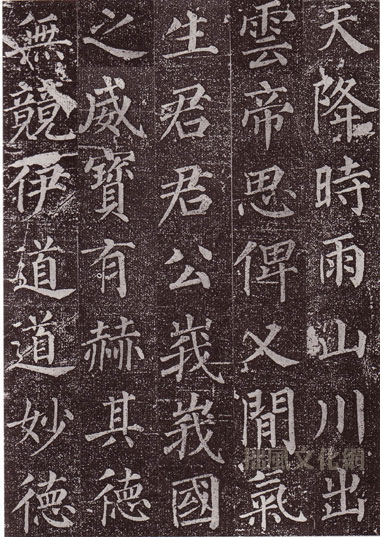 天降時雨山川出
雲帝思俾乂間氣
生君君公峩峩國
之威寶有赫其德
無競伊道道妙德
拙風文化網